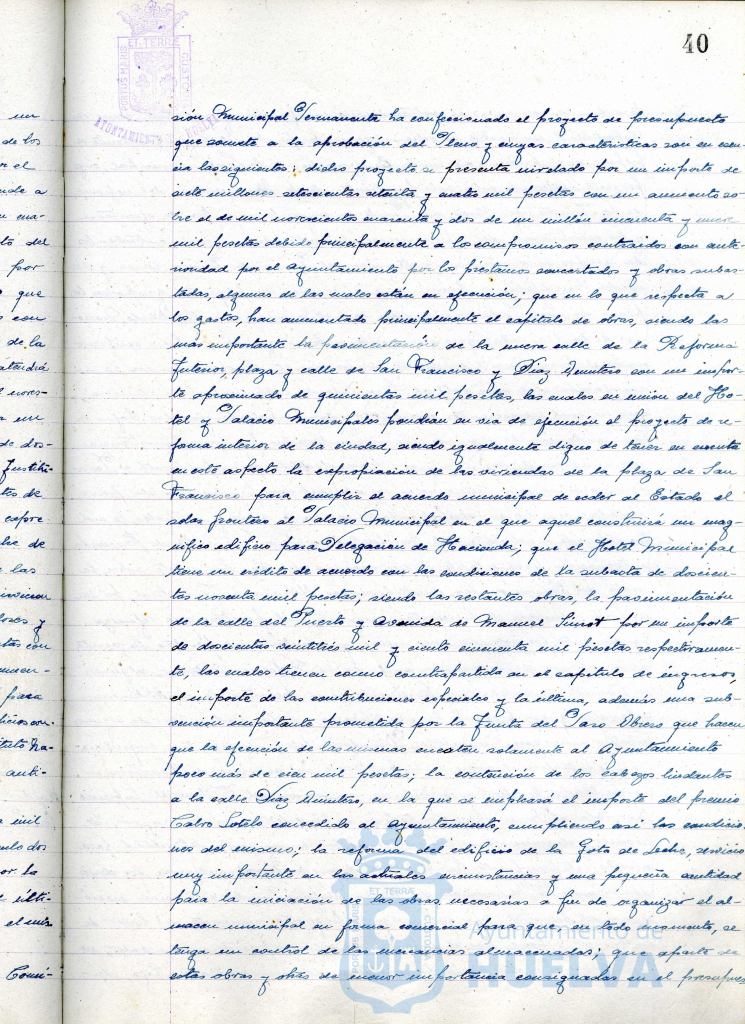 40
PORTUS MARIS ET TERRAE CUSTODIA
AYUNTAMIENTO HUELVA
sión Municipal Permanente ha confeccionado el proyecto de presupuesto
que somete a la aprobación del Pleno y cuyas características son en esen-
cia las siguientes: dicho proyecto se presenta nivelado por un importe de
siete millones setecientas setenta y cuatro mil pesetas con un aumento so-
bre el de mil novecientos cuarenta y dos de un millón cincuenta y nueve
mil pesetas debido principalmente a los compromisos contraidos con ante-
rioridad por el Ayuntamiento por los préstamos concertados y obras subas-
tadas, algunas de las cuales están en ejecución; que en lo que respecta a
los gastos, han aumentado principalmente el capítulo de obras, siendo las
mas importante la pavimentación de la nueva calle de la Reforma
Interior, plaza y calle de San Francisco y Diaz Quintero con un impor-
te aproximado de quinientas mil pesetas, las cuales en unión del Ho-
tel y Palacio Municipales pondrían en via de ejecución el proyecto de re-
forma interior de la ciudad, siendo igualmente digno de tener en cuenta
en este aspecto la expropiación de las viviendas de la plaza de San
Francisco para cumplir el acuerdo municipal de ceder al Estado el
solar frontero al Palacio Municipal en el que aquel construirá un mag-
nífico edificio para Delegación de Hacienda; que el Hotel Municipal
tiene un crédito de acuerdo con las condiciones de la subasta de doscien-
tas noventa mil pesetas; siendo las restantes obras, la pavimentación
de la calle del Puerto y Avenida de Manuel Siurot por un importe
de doscientas veintitrés mil y ciento cincuenta mil pesetas respectivamen-
te, las cuales tienen como contrapartida en el capítulo de ingresos,
el importe de las contribuciones especiales y la última, además una sub-
vención importante prometida por la Junta del Paro Obrero que hacen
que la ejecución de las mismas cuesten solamente al Ayuntamiento
poco más de cien mil pesetas; la contención de los cabezos lindantes
a la calle Diaz Quintero, en la que se empleará el importe del premio
Calvo Sotelo concedido al Ayuntamiento, cumpliendo así las condicio-
nes del mismo; la reforma del edificio de la Gota de Leche, servicio
muy importante en las actuales circunstancias y una pequeña cantidad
para la iniciación de las obras necesarias a fin de organizar el al-
macen municipal en forma comercial para que, en todo momento, se
tenga un control de las mercancias almacenadas; que aparte de
estas obras y otras de menor importancia consignadas en el presupues
Ayuntamiento de
HUELVA